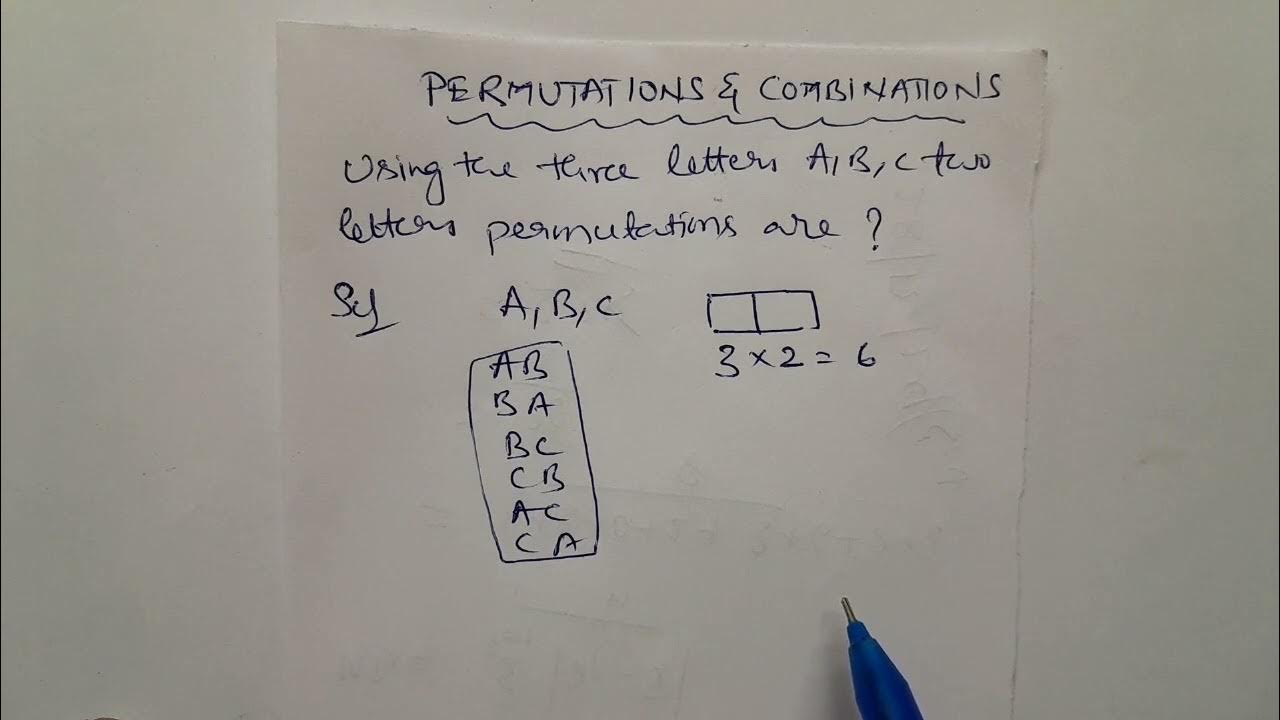 PERMUTATIONS & COMBINATIONS
Using the three letters A, B, C two
letters permutations are ?
Sol A, B, C
3 × 2 = 6
AB
BA
BC
CB
AC
CA